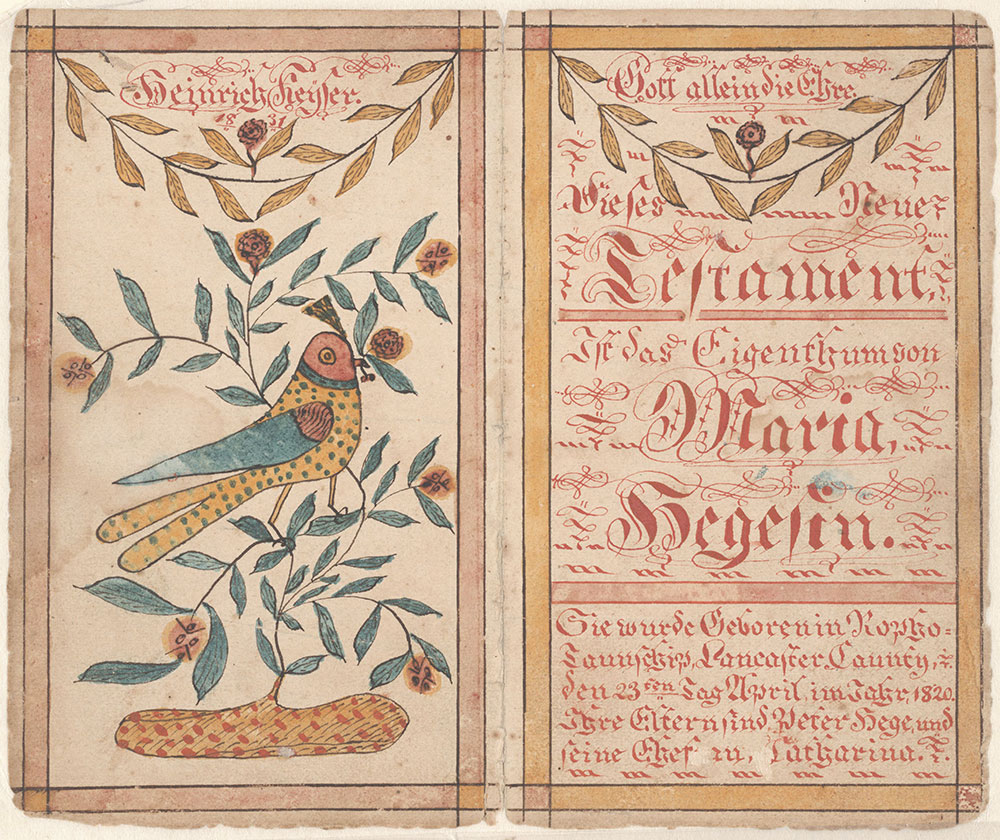 Heinrich Keyser.
1831
Gott allein die Ehre.
Dieses Neue
Testament,
Ist das Eigenthum von
Maria,
Hegesin.
Sie wurde Geboren in Rapho-
Taunschip, Lancaster, Caunty, ꝛ.
den 23ten Tag April, im Jahr, 1820.
Ihre Eltern sind, Peter Hege, und
seine Ehef in, Catharina. ꝛ.